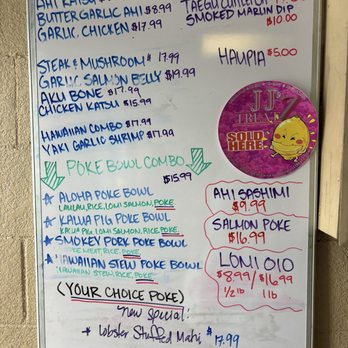 AHI KATSU $17.99
BUTTER GARLIC AHI $8.99
GARLIC CHICKEN $17.99
STEAK & MUSHROOM $17.99
GARLIC SALMON BELLY $19.99
AKU BONE $17.99
CHICKEN KATSU $15.99
HAWAIIAN COMBO $17.99
YAKI GARLIC SHRIMP $17.99
POKE BOWL COMBO
$15.99
★ ALOHA POKE BOWL
LAULAU, RICE, LOMI SALMON, POKE
★ KALUA PIG POKE BOWL
KALUA PIG, LOMI SALMON, RICE, POKE
★ SMOKEY PORK POKE BOWL
SMOKE MEAT, RICE, POKE
★ HAWAIIAN STEW POKE BOWL
HAWAIIAN STEW, RICE, POKE
(YOUR CHOICE POKE)
new special!
★ Lobster Stuffed Mahi $17.99
SMOKED MARLIN DIP
$10.00
HAUPIA $5.00
JJ'Z
TREATZ
SOLD
HERE
AHI SASHIMI
$9.99
SALMON POKE
$16.99
LOMI OIO
$8.99/$16.99
1/2 lb 1 lb